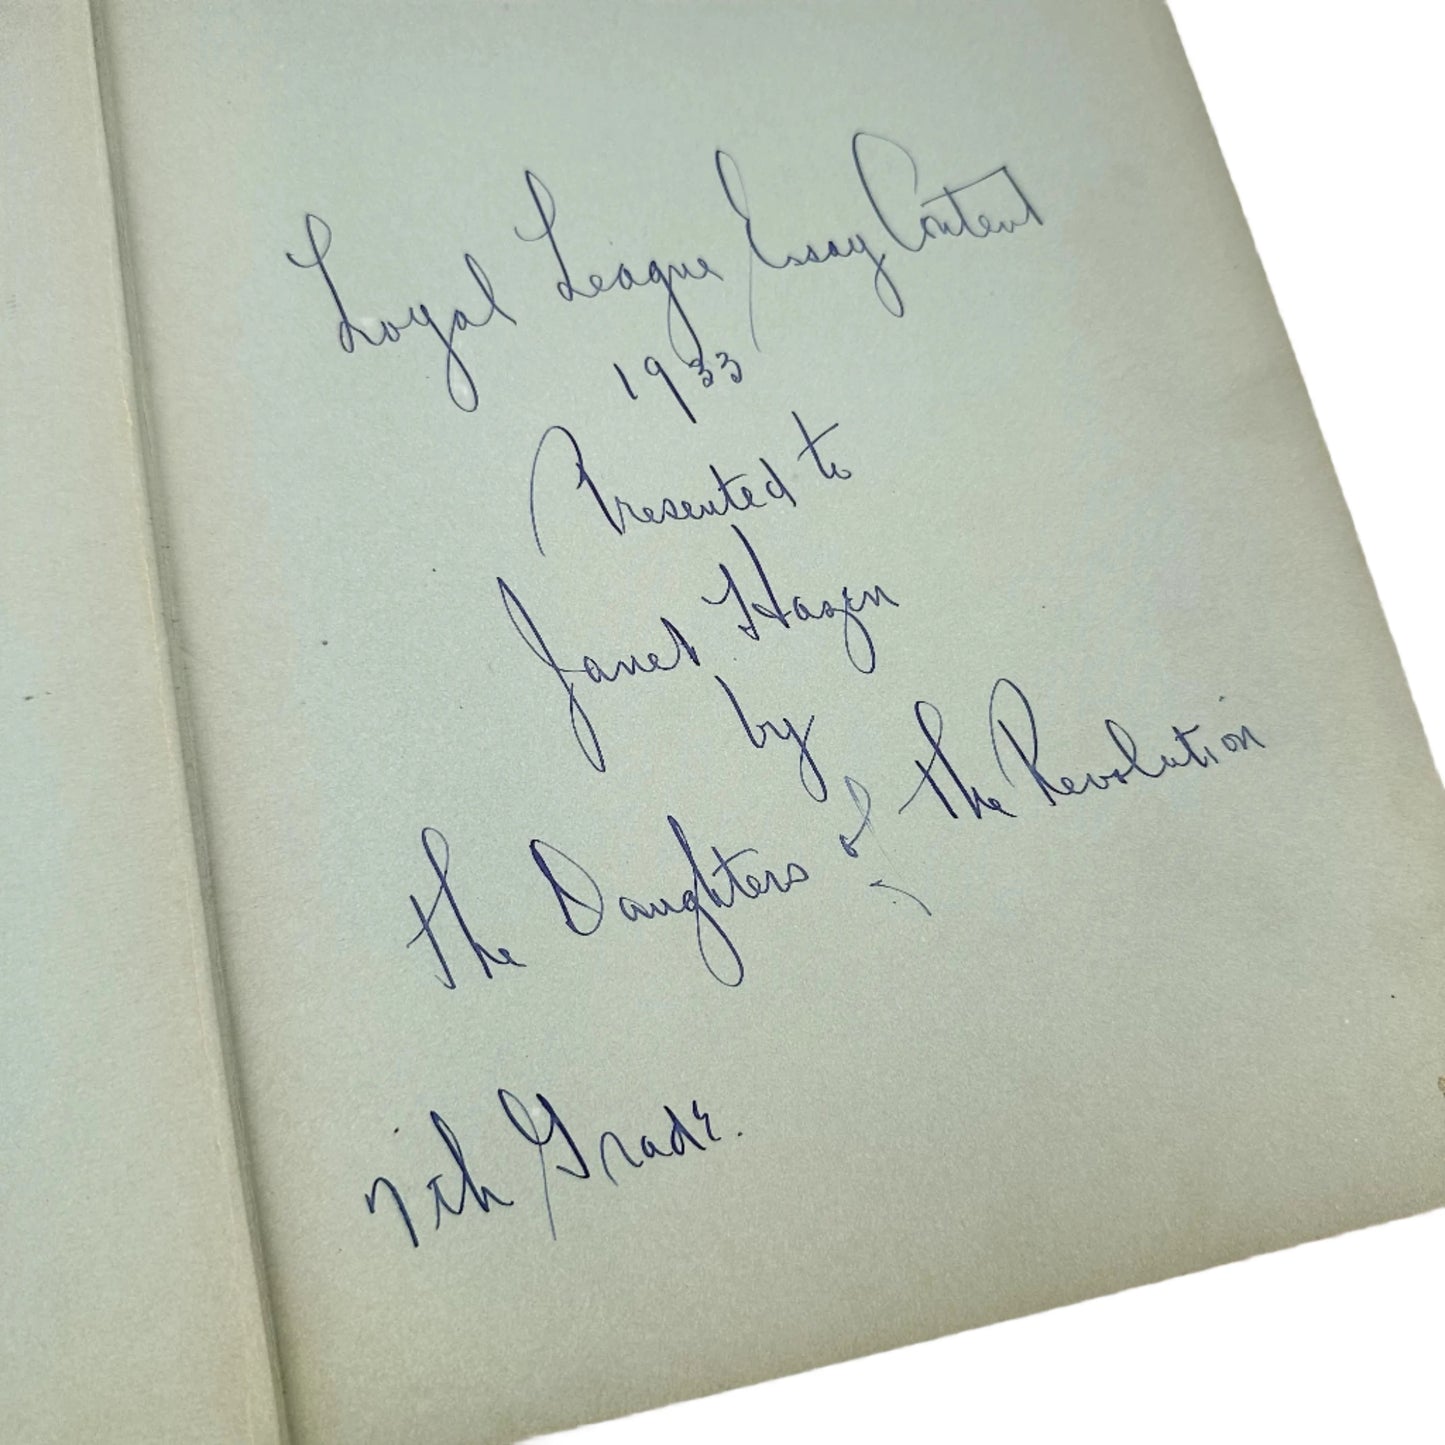 Loyal League Essay Contest
1933
Presented to
Janet Hazen
by
the Daughters of the Revolution
7th Grade.